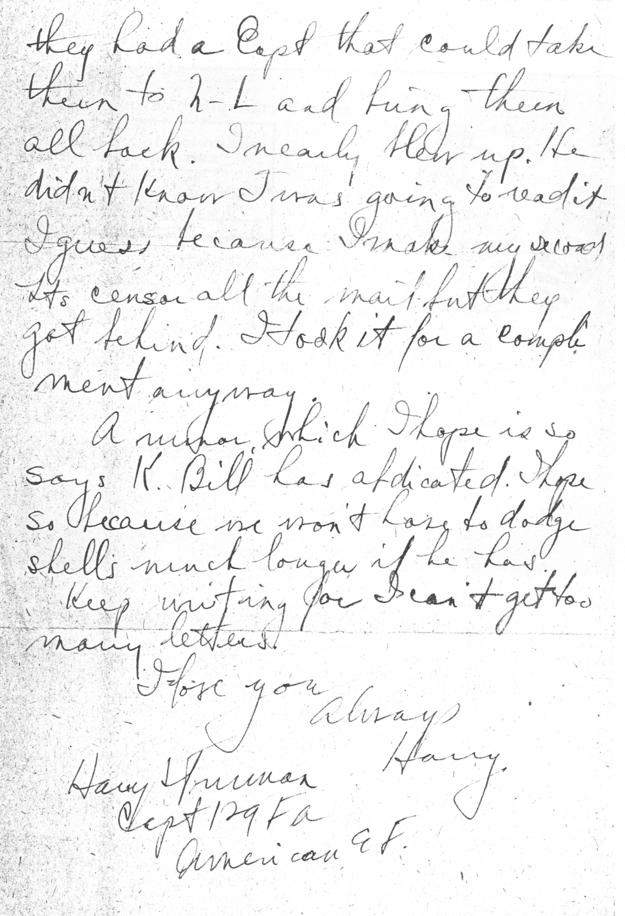 they had a Capt that could take
them to h-l and bring them
all back. I nearly blew up. He
didn't know I was going to read it
I guess because I make my second
Lts censor all the mail but they
got behind. I took it for a compli
ment anyway.
A rumor, which I hope is so
says K. Bill has abdicated. I hope
so because we won't have to dodge
shells much longer if he has.
Keep writing for I can't get too
many letters.
I love you
Always
Harry.
Harry S Truman
Capt 129 FA
American E F.